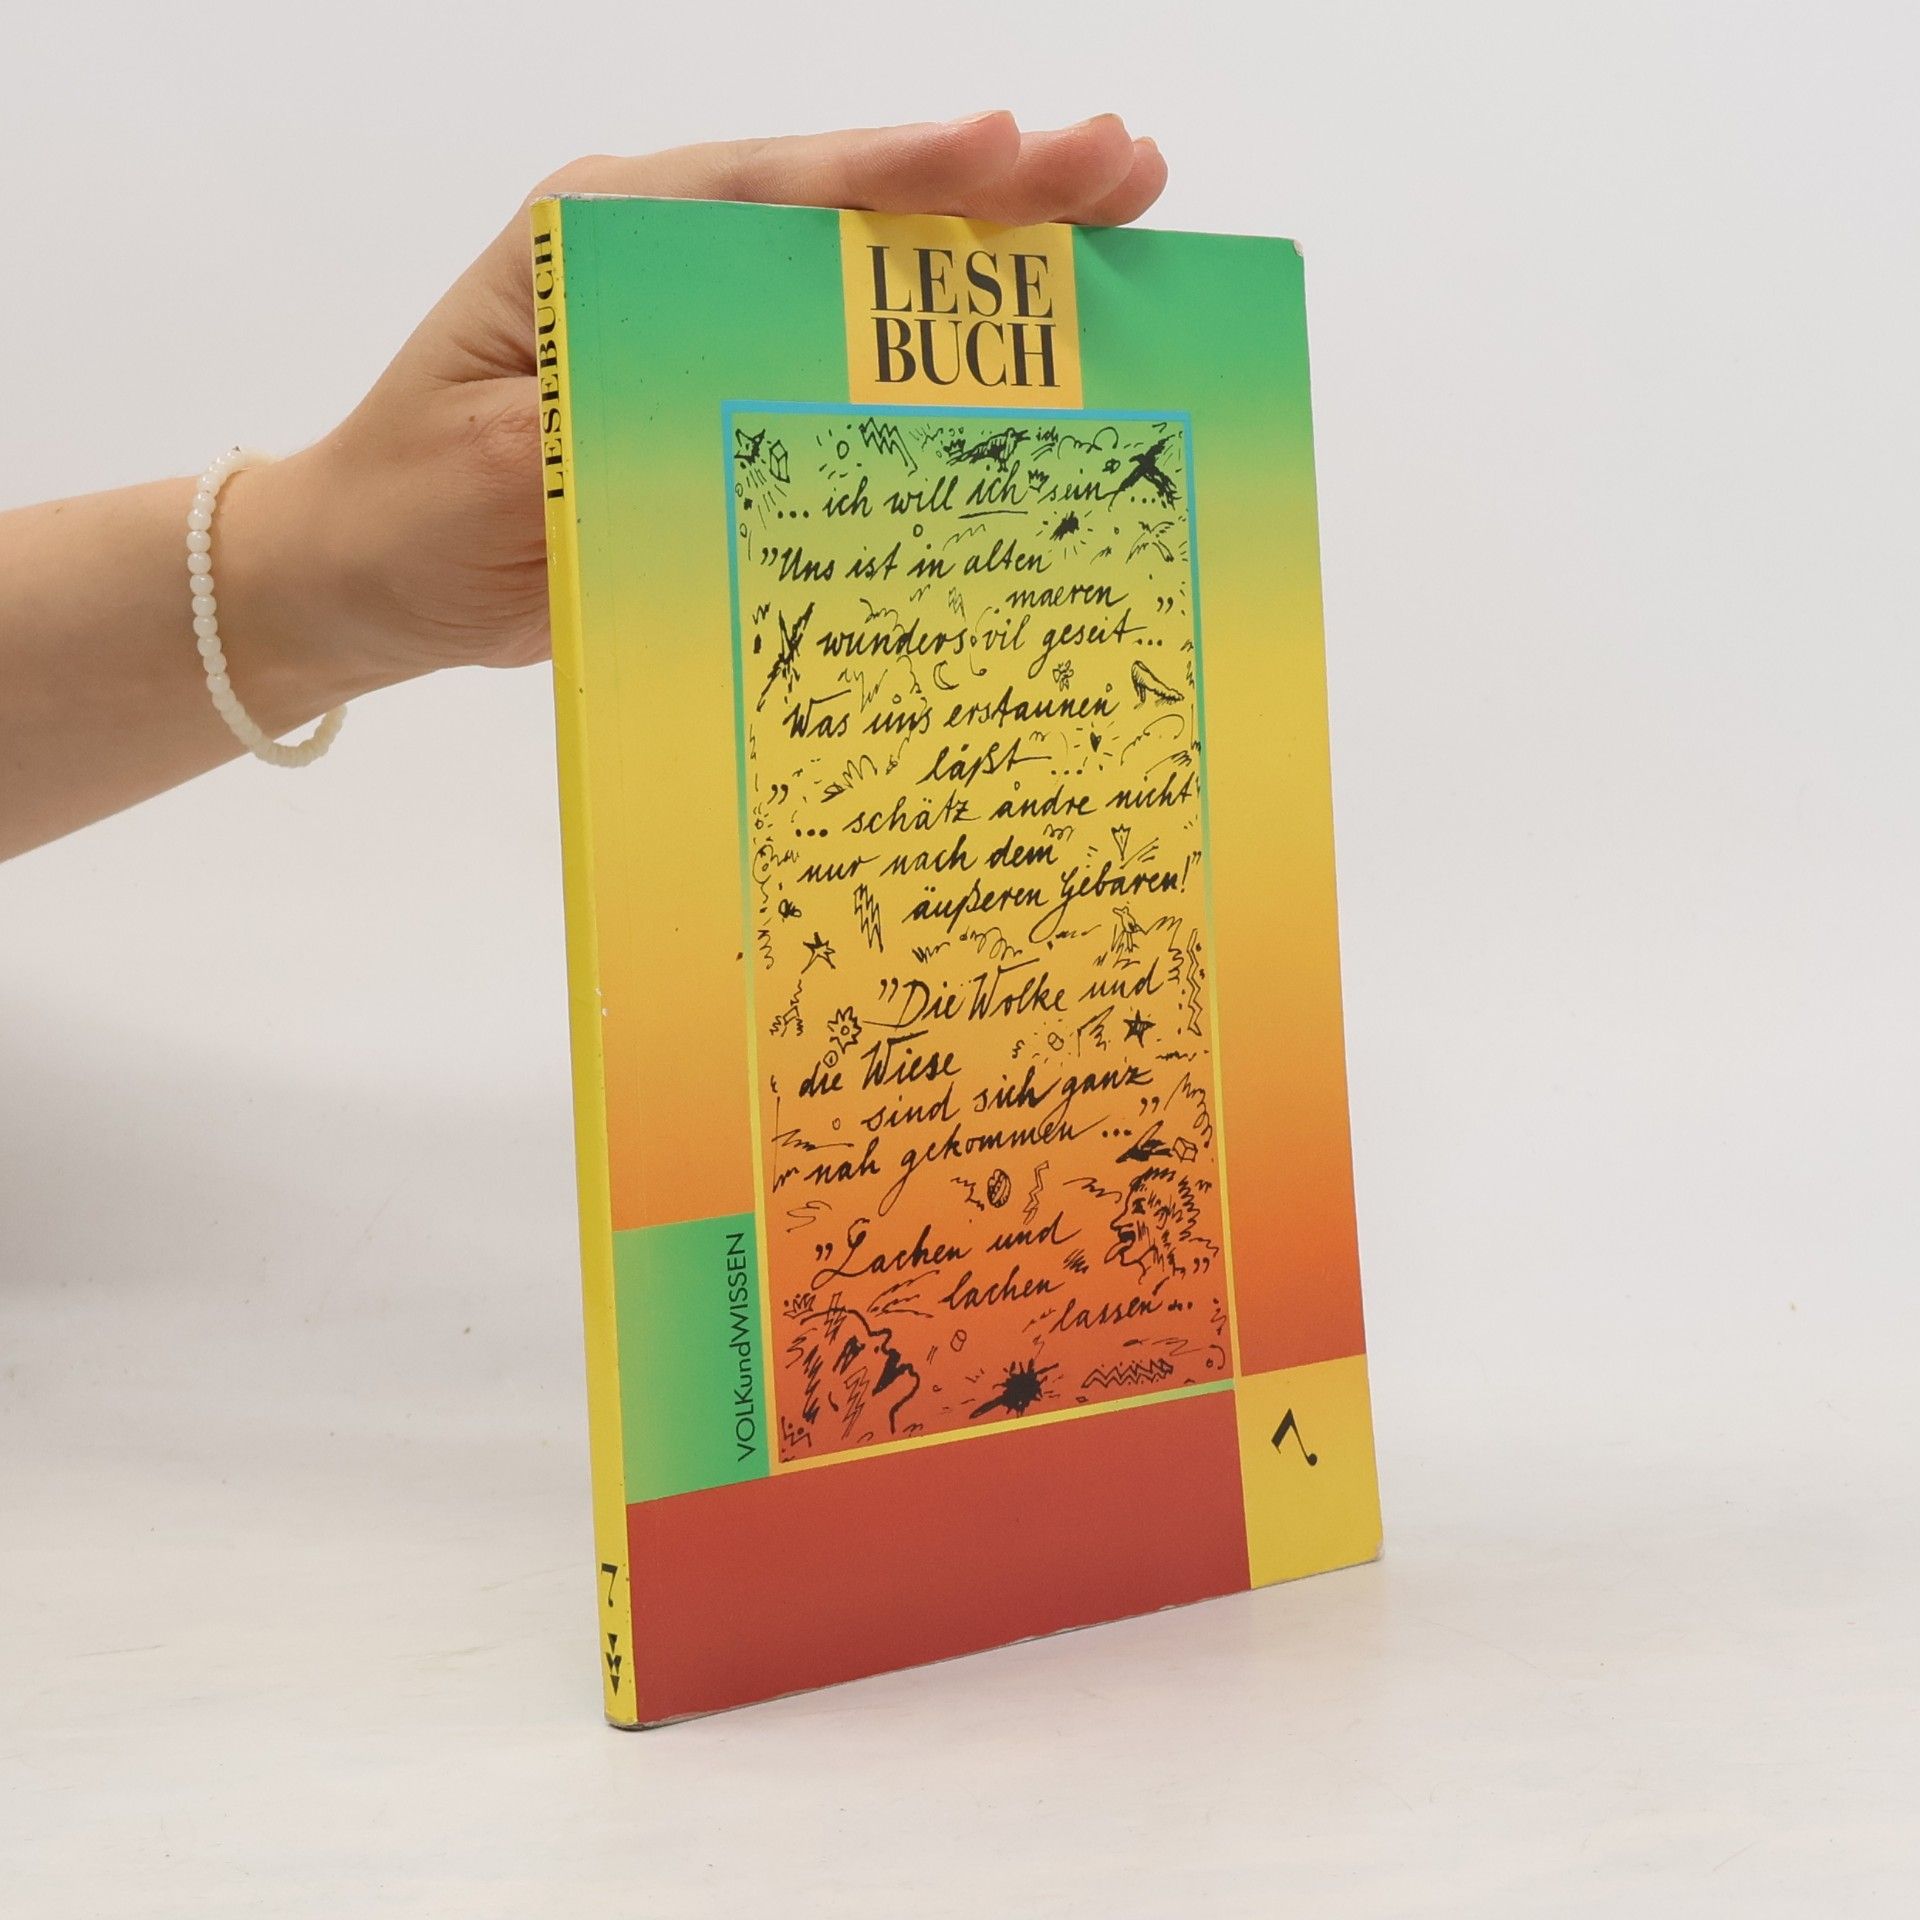 LESEBUCH
LESE
BUCH
ich
... ich will ich sein ...
"Uns ist in alten
maeren"
wunders vil geseit...
Was uns erstaunen
läßt...
"... schätz andre nicht
nur nach dem
äußeren Gebaren!"
"Die Wolke und
die Wiese
sind sich ganz
nah gekommen..."
"Lachen und
lachen
lassen..."
VOLKundWISSEN
7
7